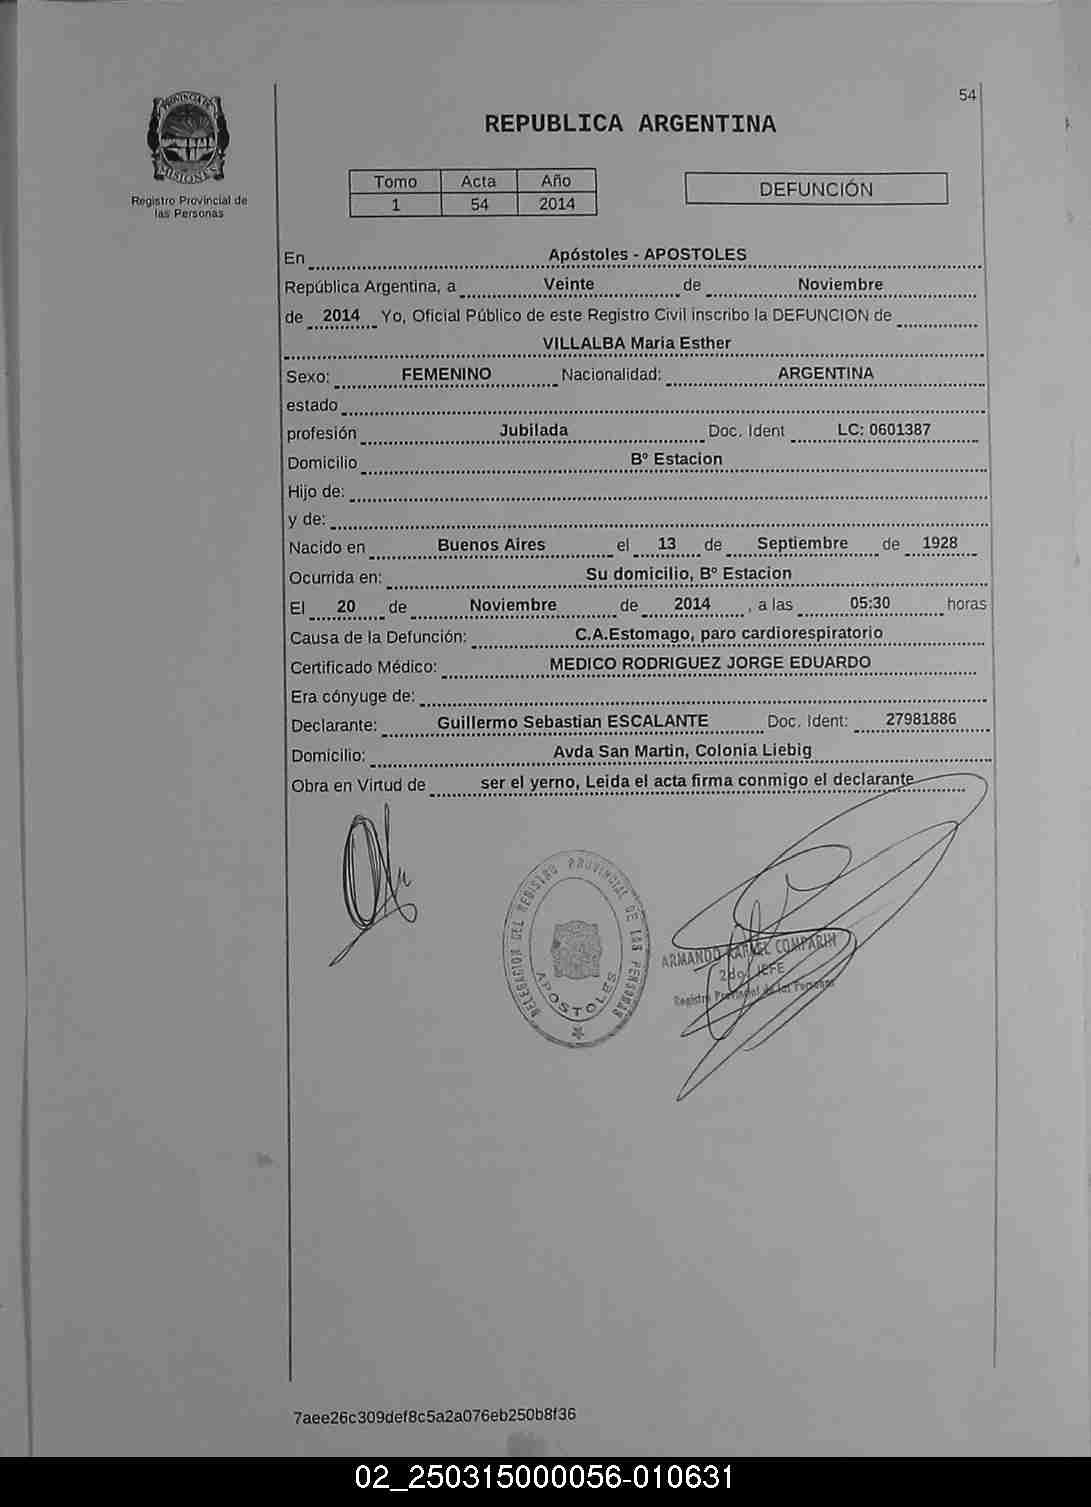 54
PROVINCIA DE
MISIONES
Registro Provincial de
las Personas
REPUBLICA ARGENTINA
Tomo Acta Año
1 54 2014
DEFUNCIÓN
En Apóstoles - APOSTOLES
República Argentina, a Veinte de Noviembre
de 2014 Yo, Oficial Público de este Registro Civil inscribo la DEFUNCION de
VILLALBA Maria Esther
Sexo: FEMENINO Nacionalidad: ARGENTINA
estado
profesión Jubilada Doc. Ident LC: 0601387
Domicilio Bº Estacion
Hijo de:
y de:
Nacido en Buenos Aires el 13 de Septiembre de 1928
Ocurrida en: Su domicilio, Bº Estacion
El 20 de Noviembre de 2014 , a las 05:30 horas
Causa de la Defunción: C.A.Estomago, paro cardiorespiratorio
Certificado Médico: MEDICO RODRIGUEZ JORGE EDUARDO
Era cónyuge de:
Declarante: Guillermo Sebastian ESCALANTE Doc. Ident: 27981886
Domicilio: Avda San Martin, Colonia Liebig
Obra en Virtud de ser el yerno, Leida el acta firma conmigo el declarante
DELEGACION DEL REGISTRO PROVINCIAL DE LAS PERSONAS
APOSTOLES
ARMANDO RAFAEL COMPARIN
2do. JEFE
Registro Provincial de las Personas
7aee26c309def8c5a2a076eb250b8f36
02_250315000056-010631